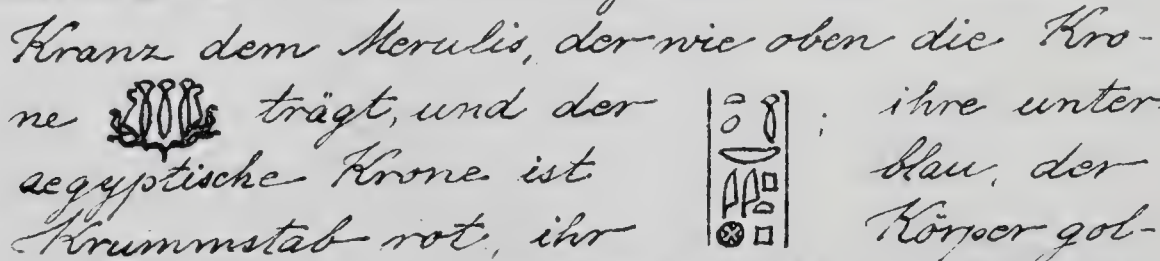 Kranz dem Merulis, der wie oben die Kro-
ne trägt, und der ; ihre unter-
aegyptische Krone ist blau, der
Krummstab rot, ihr Körper gol-